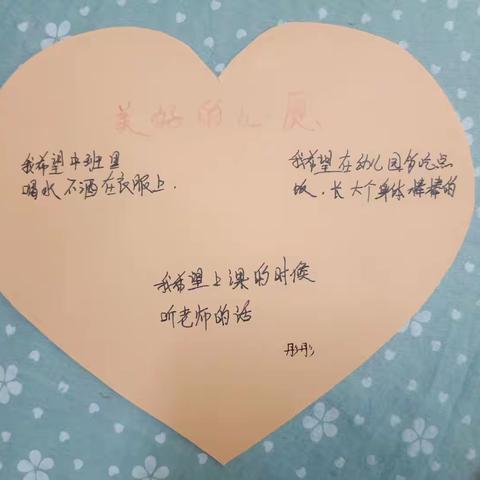 美好的心愿
我希望中班里
喝水不洒在衣服上.
我希望在幼儿园多吃点
饭.长大个身体棒棒的
我希望上课的时候
听老师的话
彤彤